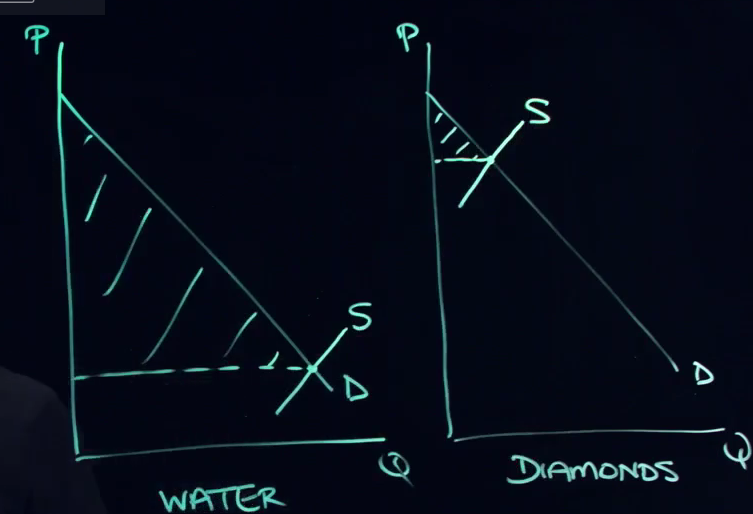 P
S
D
Q
WATER
P
S
D
Q
DIAMONDS